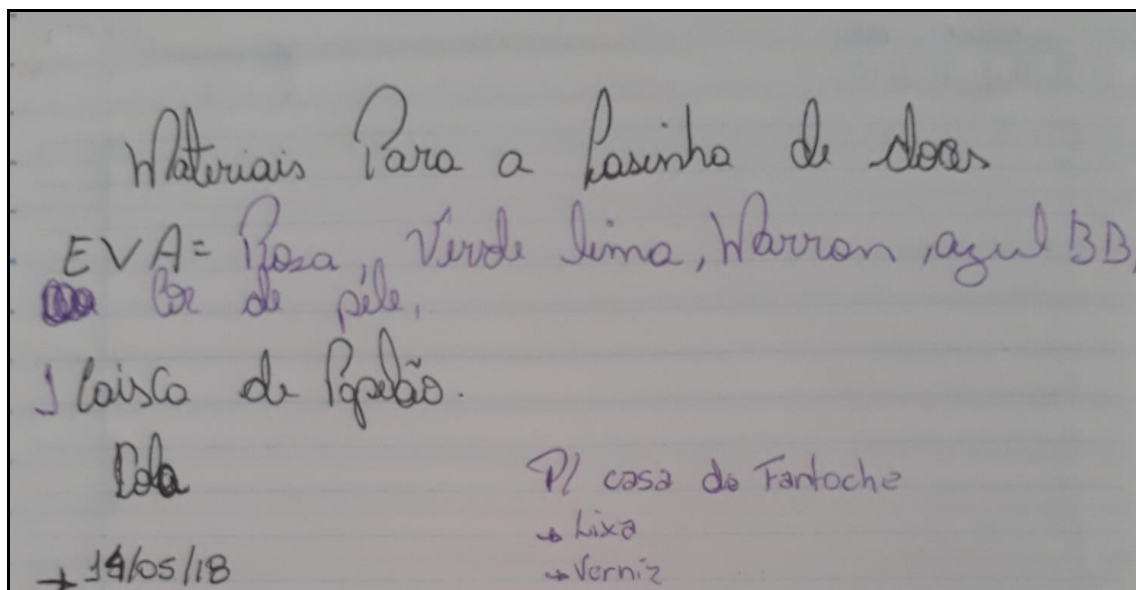 Materiais Para a Casinha de doces
EVA= Rosa, Verde lima, Marron, azul BB,
Cor de péle,
1 Caisca de Papelão.
Cola
P/ casa de Fantoche
→ Lixa
→ Verniz
→ 14/05/18